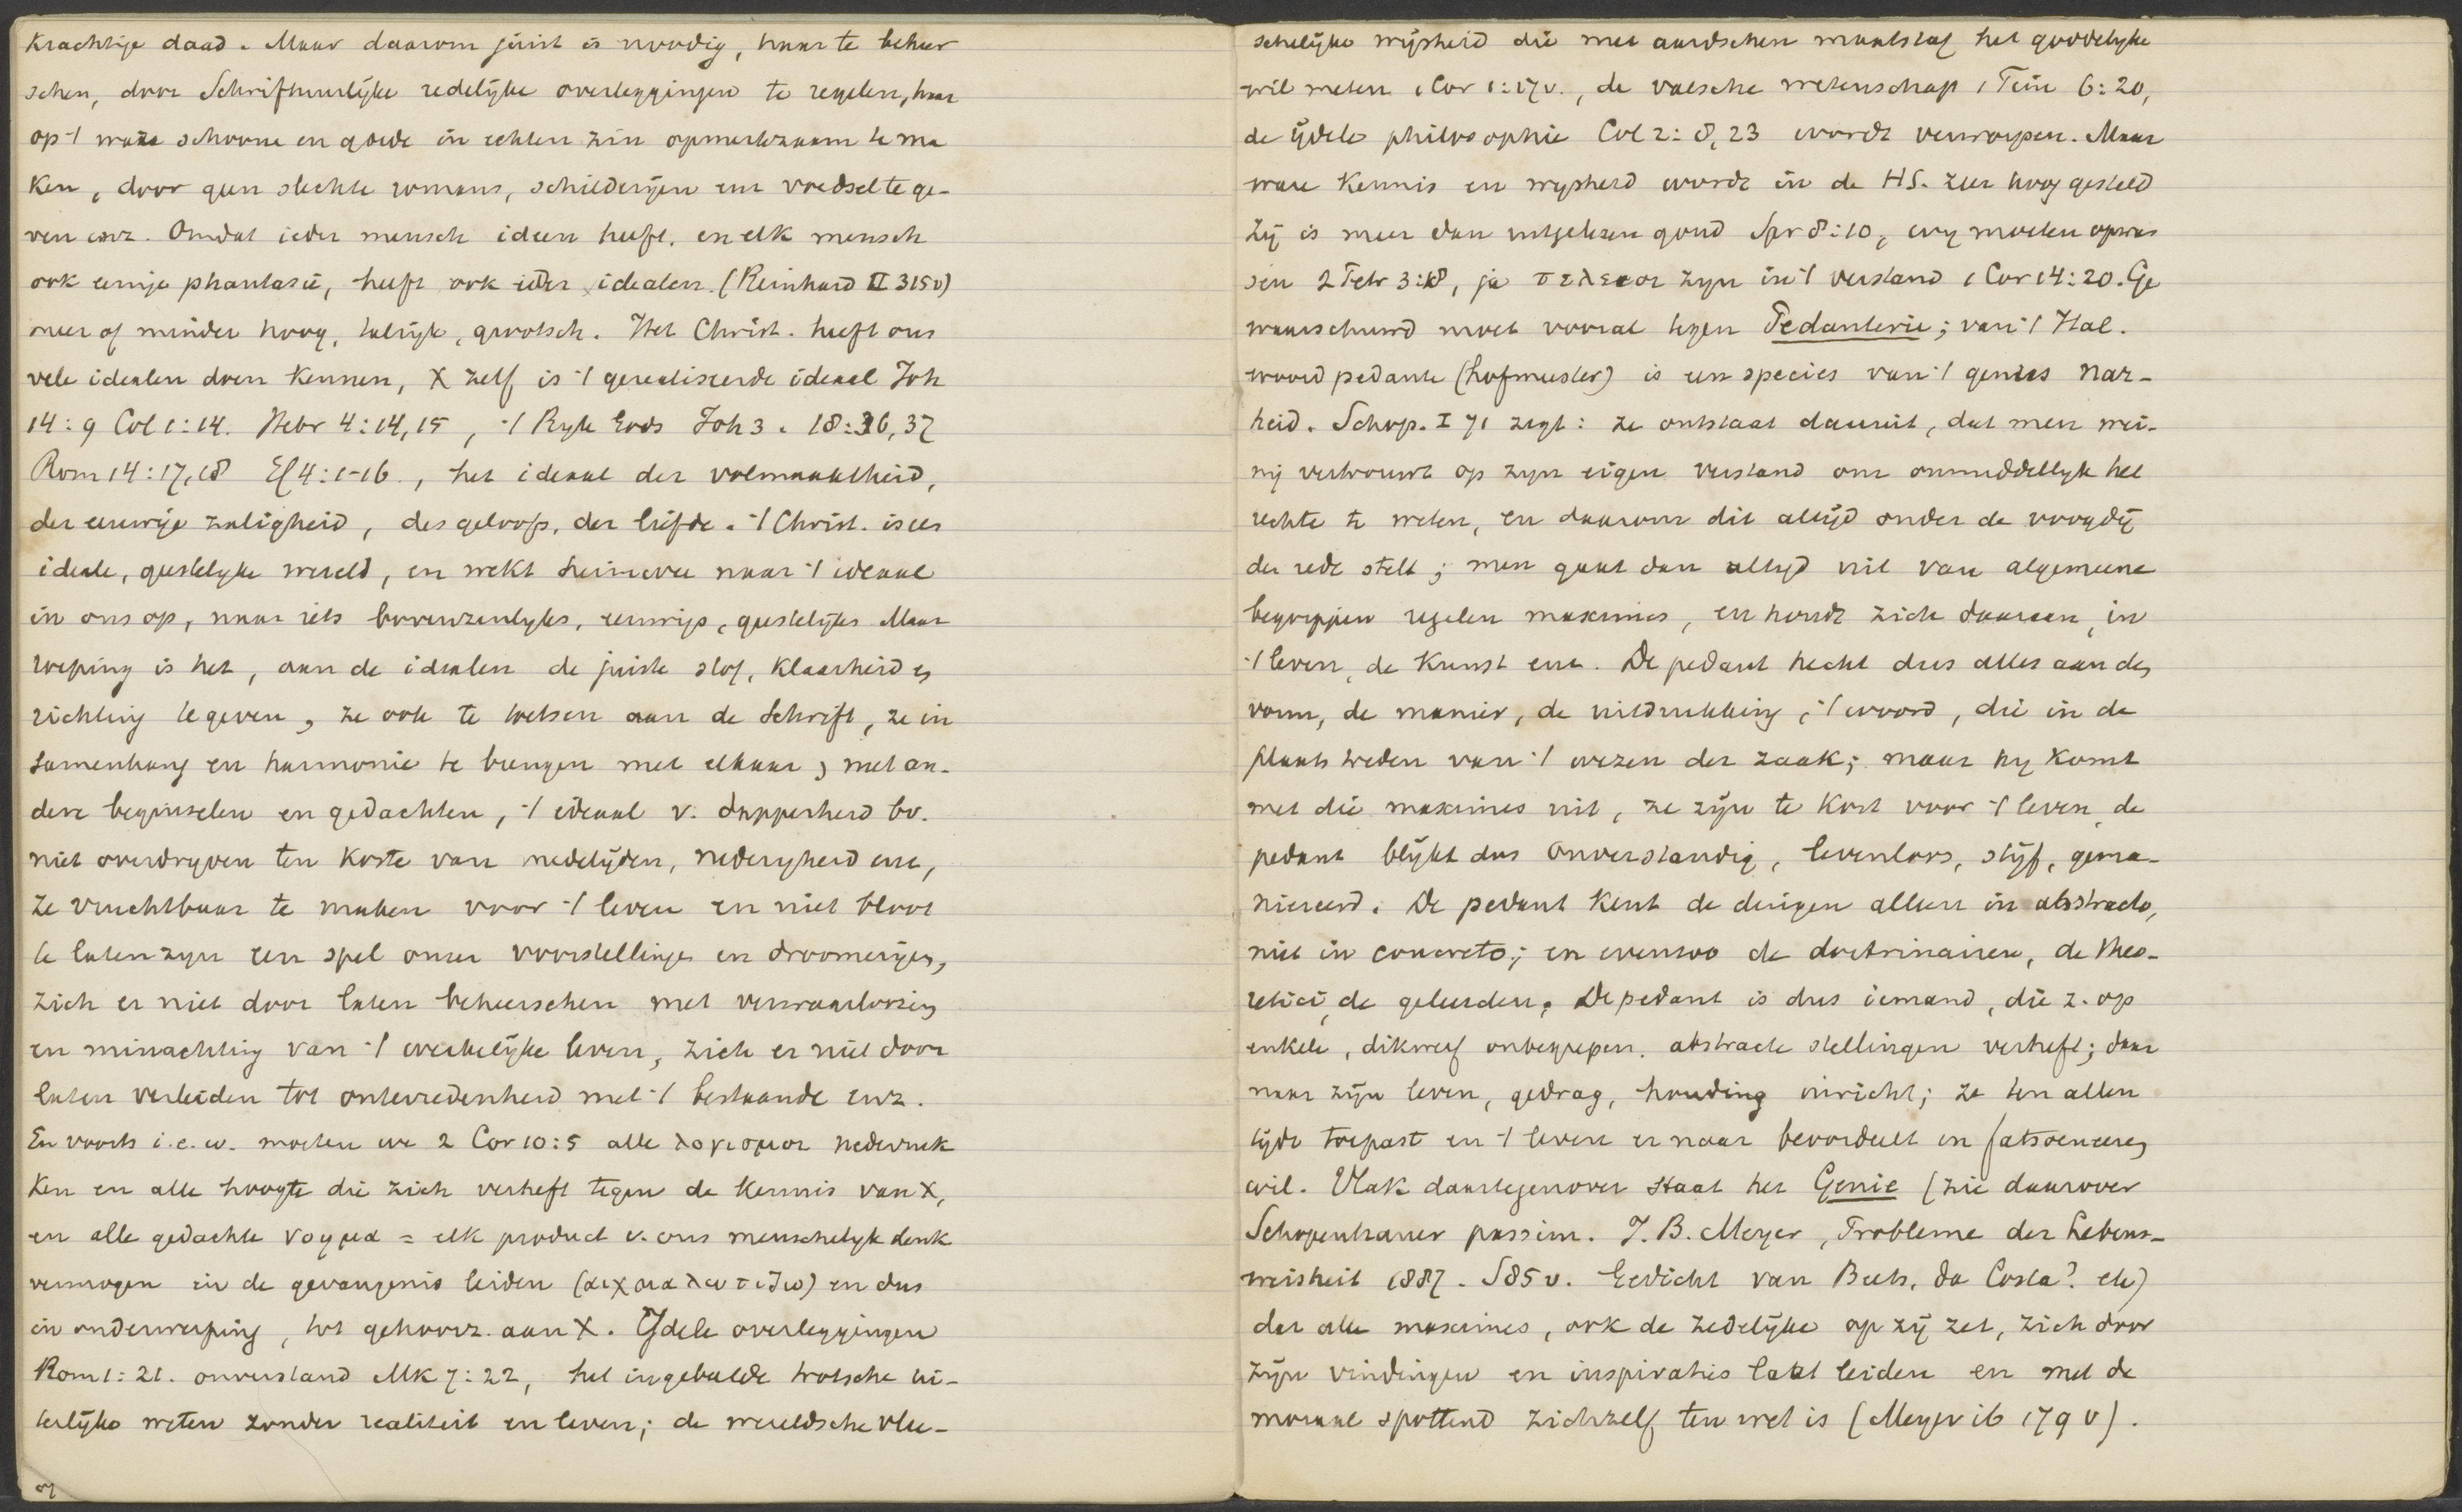 krachtige daad. Maar daarom juist is noodig, haar te beheer
schen, door Schriftuurlijke redelijke overleggingen te regelen, haar
op 't ware schoone en goede in echten zin opmerkzaam te ma
ken, door geen slechte romans, schilderijen enz voedsel te ge-
ven enz. Omdat ieder mensch ideen heeft, en elk mensch
ook eenige phantasie, heeft ook ieder idealen. (Reinhard II 315v)
meer of minder hoog, talrijk, grootsch. Het Christ. heeft ons
vele idealen doen kennen, X zelf is 't gerealiseerde ideaal Joh
14:9 Col 1:14. Hebr 4:14,15, 't Ryk Gods Joh 3. 18:36,37
Rom 14:17,18 Ef 4:1-16., het ideaal der volmaaktheid,
der eeuwige zaligheid, des geloofs, der liefde. 't Christ. is een
ideale, geestelyke wereld, en wekt heimwee naar 't ideaal
in ons op, naar iets bovenzinlyks, eeuwigs, geestelijks Maar
roeping is het, aan de idealen de juiste stof, klaarheid en
richting te geven, ze ook te toetsen aan de Schrift, ze in
samenhang en harmonie te brengen met elkaar, met an-
dere beginselen en gedachten, 't ideaal v. dapperheid bv.
niet overdryven ten koste van medelijden, nederigheid enz,
ze vruchtbaar te maken voor 't leven en niet bloot
te laten zyn een spel onzer voorstellingen en droomerijen,
zich er niet door laten beheerschen met verwaarloozing
en minachting van 't werkelijke leven, zich er niet door
laten verleiden tot ontevredenheid met 't bestaande enz.
En voorts i.e.w. moeten we 2 Cor 10:5 alle λογισμοι nederwerk
ken en alle hoogte die zich verheft tegen de kennis van X,
en alle gedachte νοημα = elk product v. ons menschelyk denk
vermogen in de gevangenis leiden (αιχμαλωτιζω) en dus
in onderwerping, tot gehoorz. aan X. IJdele overleggingen
Rom 1:21. onverstand Mk 7:22, het ingebeelde trotsche ui-
terlijke weten zonder realiteit en leven; de wereldsche vlee-
schelijke wijsheid die met aardschen maatstaf het goddelyke
wil meten 1 Cor 1:17v., de valsche wetenschap 1 Tim 6:20,
de ijdele philosophie Col 2:8,23 wordt verworpen. Maar
ware kennis en wysheid wordt in de HS. zeer hoog gesteld
Zij is meer dan uitgelezen goud Spr 8:10, wy moeten opwas
sen 2 Petr 3:18, ja τελειοι zyn in 't verstand 1 Cor 14:20. Ge
waarschuwd moet vooral tegen Pedanterie; van 't Ital.
woord pedante (hofmeester) is een species van 't genus Nar-
heid. Schop. I 71 zegt: ze ontstaat daaruit, dat men wei-
nig vertrouwt op zyn eigen verstand om onmiddellyk het
rechte te weten, en daarom dit altijd onder de voogdij
der rede stelt; men gaat dan altyd uit van algemeene
begrippen regelen maximes, en houdt zich daaraan, in
't leven, de kunst enz. De pedant hecht dus alles aan den
vorm, de manier, de uitdrukking, 't woord, die in de
plaats treden van 't wezen der zaak; maar hy komt
met die maximes uit, ze zijn te kort voor 't leven, de
pedant blijkt dus onverstandig, levenloos, stijf, gema-
niereerd. De pedant kent de dingen alleen in abstracto,
niet in concreto; en evenzoo de doctrinairen, de theo-
retici, de geleerden. De pedant is dus iemand, die z. op
enkele, dikwerf onbegrepen. abstracte stellingen verheft; daar
naar zijn leven, gedrag, houding inricht; ze ten allen
tijde toepast en 't leven er naar beoordeelt en fatsoeneeren
wil. Vlak daartegenover staat het Genie (zie daarover
Schopenhauer passim. J.B. Meyer, Probleme der Lebens-
weisheit 1887. S85v. Gedicht van Beets, da Costa? etc)
dat alle maximes, ook de zedelijke op zij zet, zich door
zijn vindingen en inspiraties laat leiden en met de
moraal spottend zichzelf ten wet is (Meyer ib 179v).